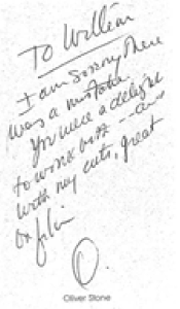 To William
I am sorry there
was a mistake.
You were a delight
to work with --
with my cuts, great
O.
Oliver Stone